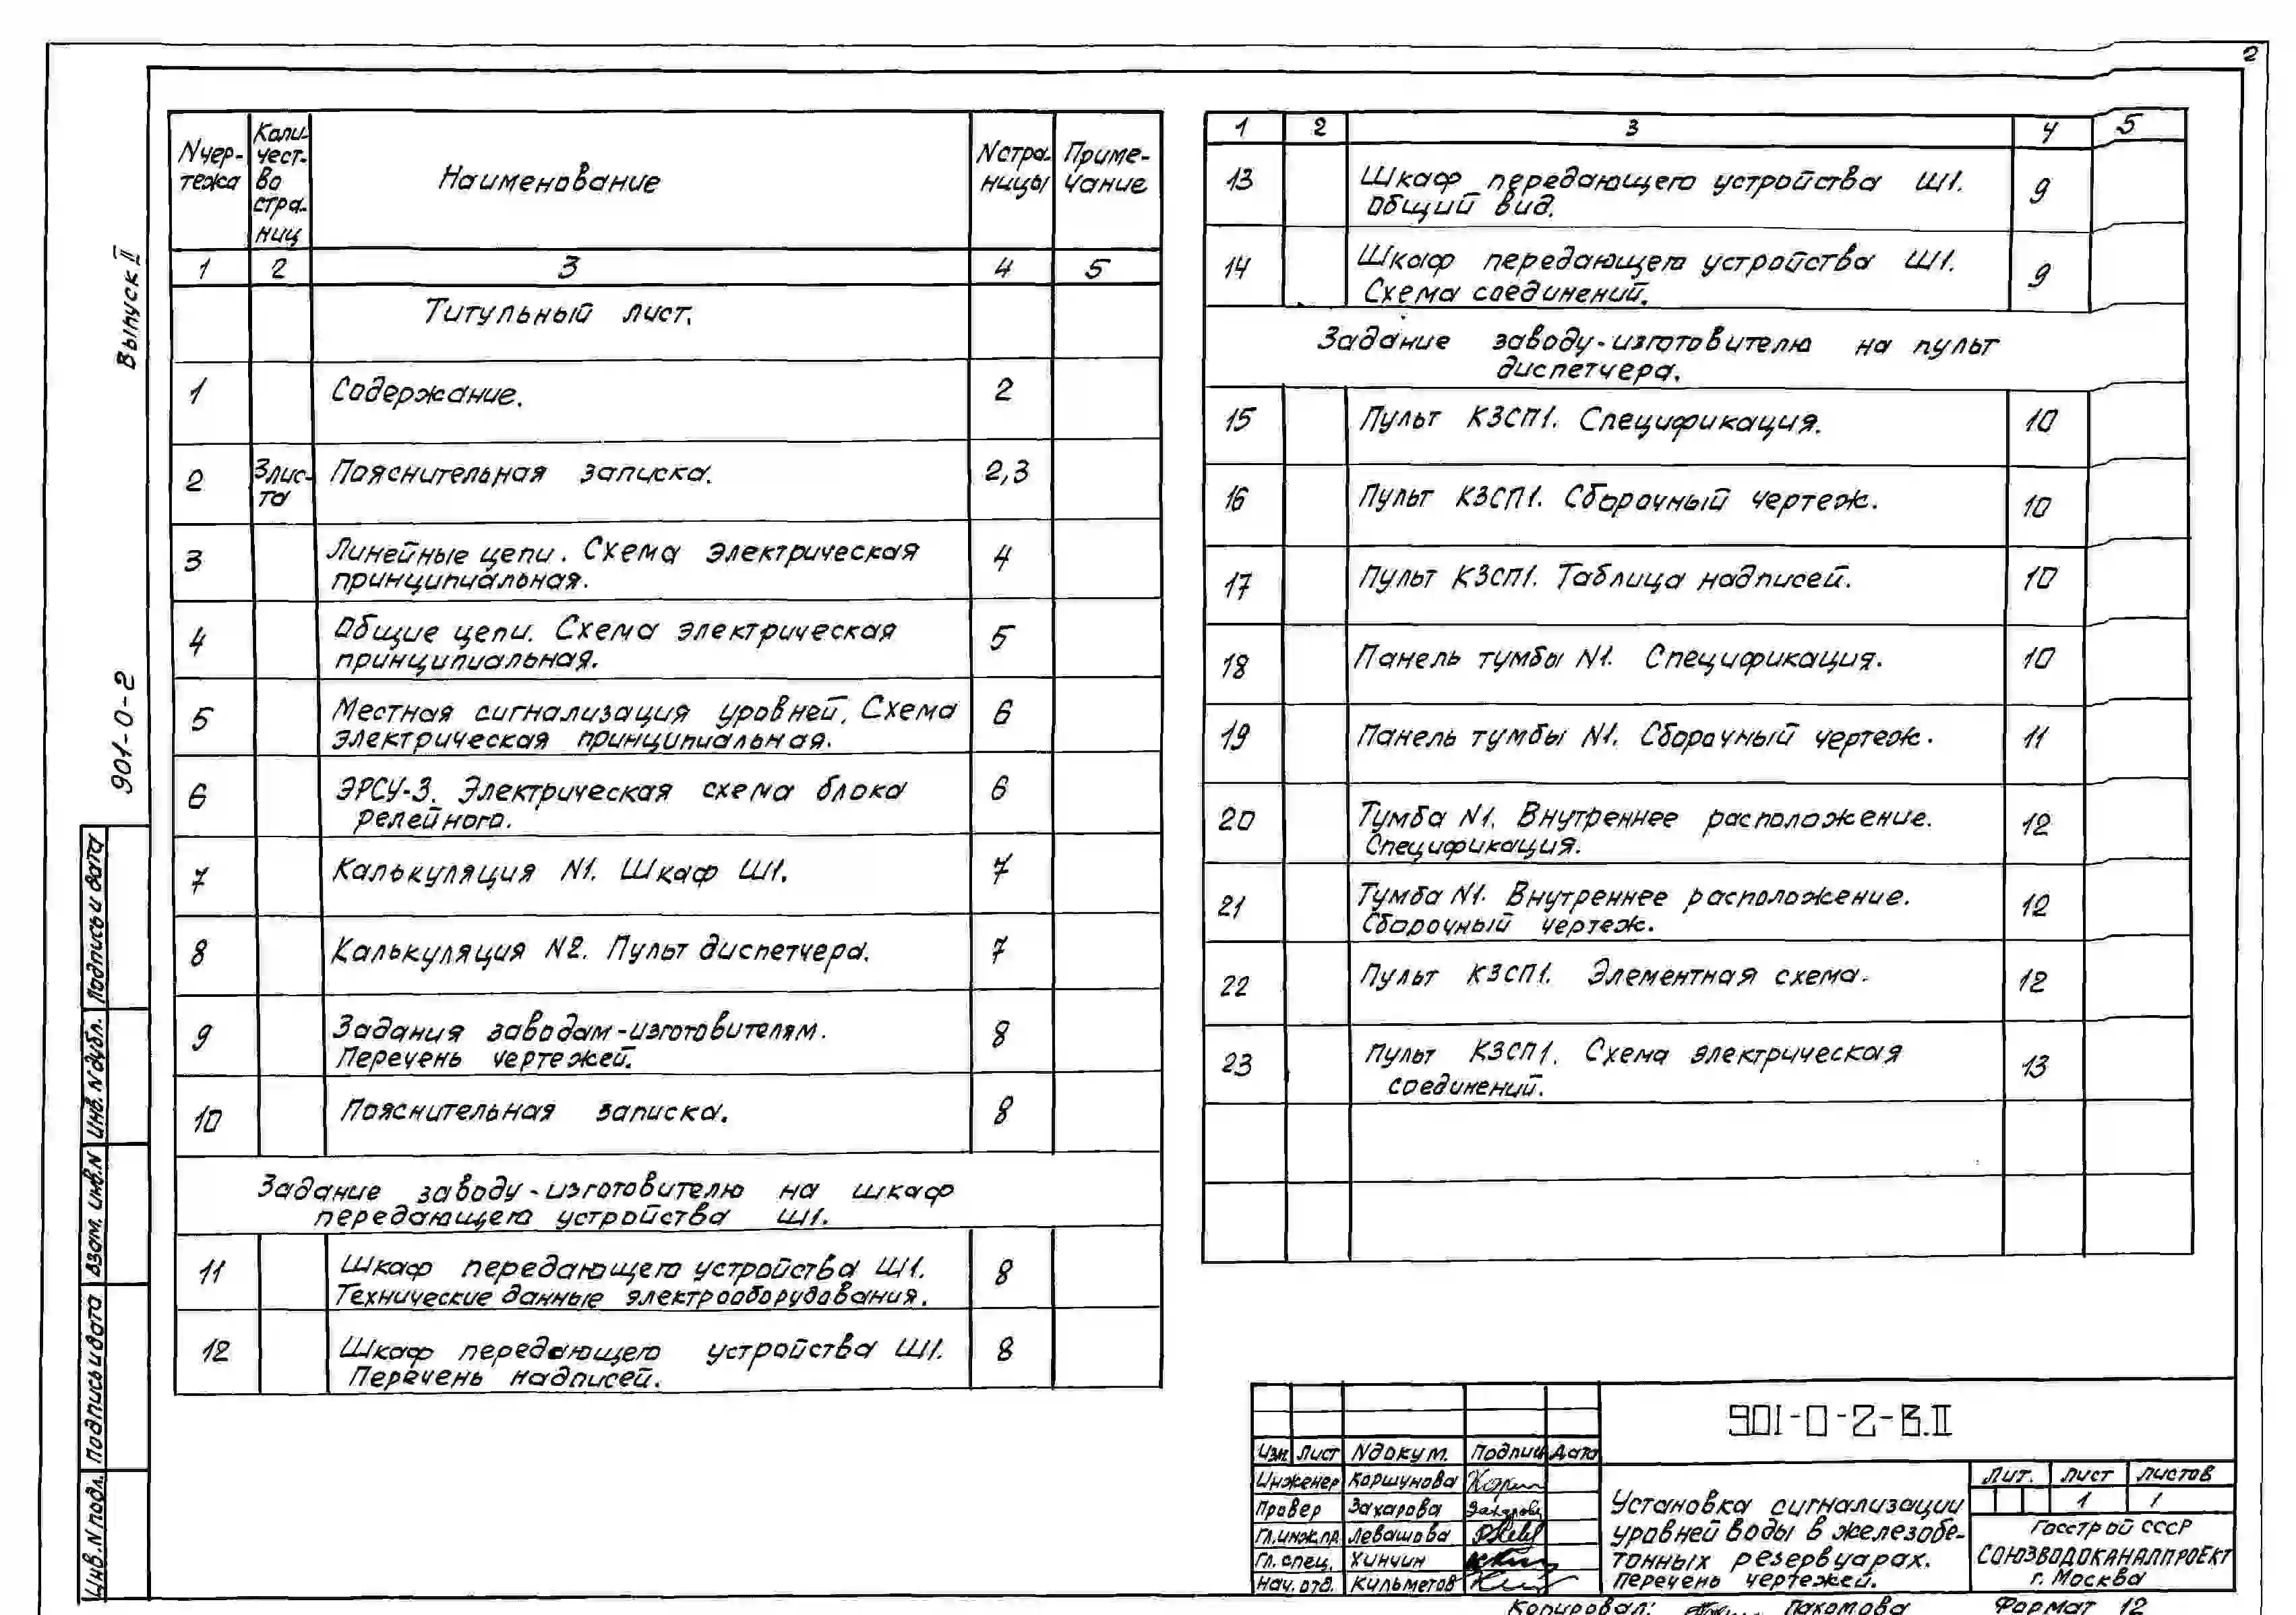 2
Выпуск II
901-0-2
Nчер-
тежа
Коли-
чест-
во
стра-
ниц
Наименование
Nстра-
ницы
Приме-
чание
1 2 3 4 5
Титульный лист.
1 Содержание. 2
2 3лис-
та
Пояснительная записка. 2,3
3 Линейные цепи. Схема электрическая 4
принципиальная.
4 Общие цепи. Схема электрическая 5
принципиальная.
5 Местная сигнализация уровней. Схема 6
электрическая принципиальная.
6 ЭРСУ-3. Электрическая схема блока 6
релейного.
7 Калькуляция N1. Шкаф Ш1. 7
8 Калькуляция N2. Пульт диспетчера. 7
9 Задания заводам-изготовителям. 8
Перечень чертежей.
10 Пояснительная записка. 8
Задание заводу-изготовителю на шкаф
передающего устройства Ш1.
11 Шкаф передающего устройства Ш1. 8
Технические данные электрооборудования.
12 Шкаф передающего устройства Ш1. 8
Перечень надписей.
1 2 3 4 5
13 Шкаф передающего устройства Ш1. 9
Общий вид.
14 Шкаф передающего устройства Ш1. 9
Схема соединений.
Задание заводу-изготовителю на пульт
диспетчера.
15 Пульт КЗСП1. Спецификация. 10
16 Пульт КЗСП1. Сборочный чертеж. 10
17 Пульт КЗСП1. Таблица надписей. 10
18 Панель тумбы N1. Спецификация. 10
19 Панель тумбы N1. Сборочный чертеж. 11
20 Тумба N1. Внутреннее расположение. 12
Спецификация.
21 Тумба N1. Внутреннее расположение. 12
Сборочный чертеж.
22 Пульт КЗСП1. Элементная схема. 12
23 Пульт КЗСП1. Схема электрическая 13
соединений.
Инв.Nподл. Подпись и дата Взам. инв.N Инв.Nдубл. Подпись и дата
901-0-2-В.II
Изм. Лист Nдокум. Подпись Дата
Инженер Коршунова
Провер Захарова Захарова
Гл.инж.пр Левашова
Гл. спец. Хинчин
Нач. отд. Кильметов
Установка сигнализации
уровней воды в железобе-
тонных резервуарах.
Перечень чертежей.
Лит. Лист Листов
1 1
Госстрой СССР
СОЮЗВОДОКАНАЛПРОЕКТ
г. Москва
Копировал: Пахомова Формат 12